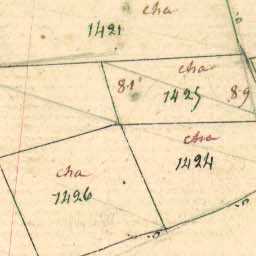 cha
1421
cha
81
1425
89
cha
1424
cha
1426